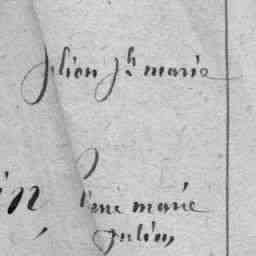 Julien Jh marie
in
marie
julien